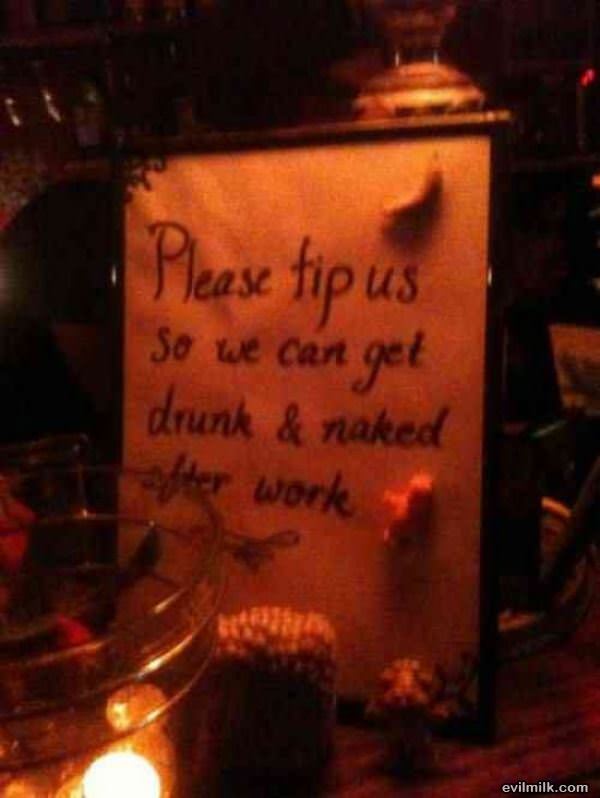 Please tip us
so we can get
drunk & naked
after work
evilmilk.com